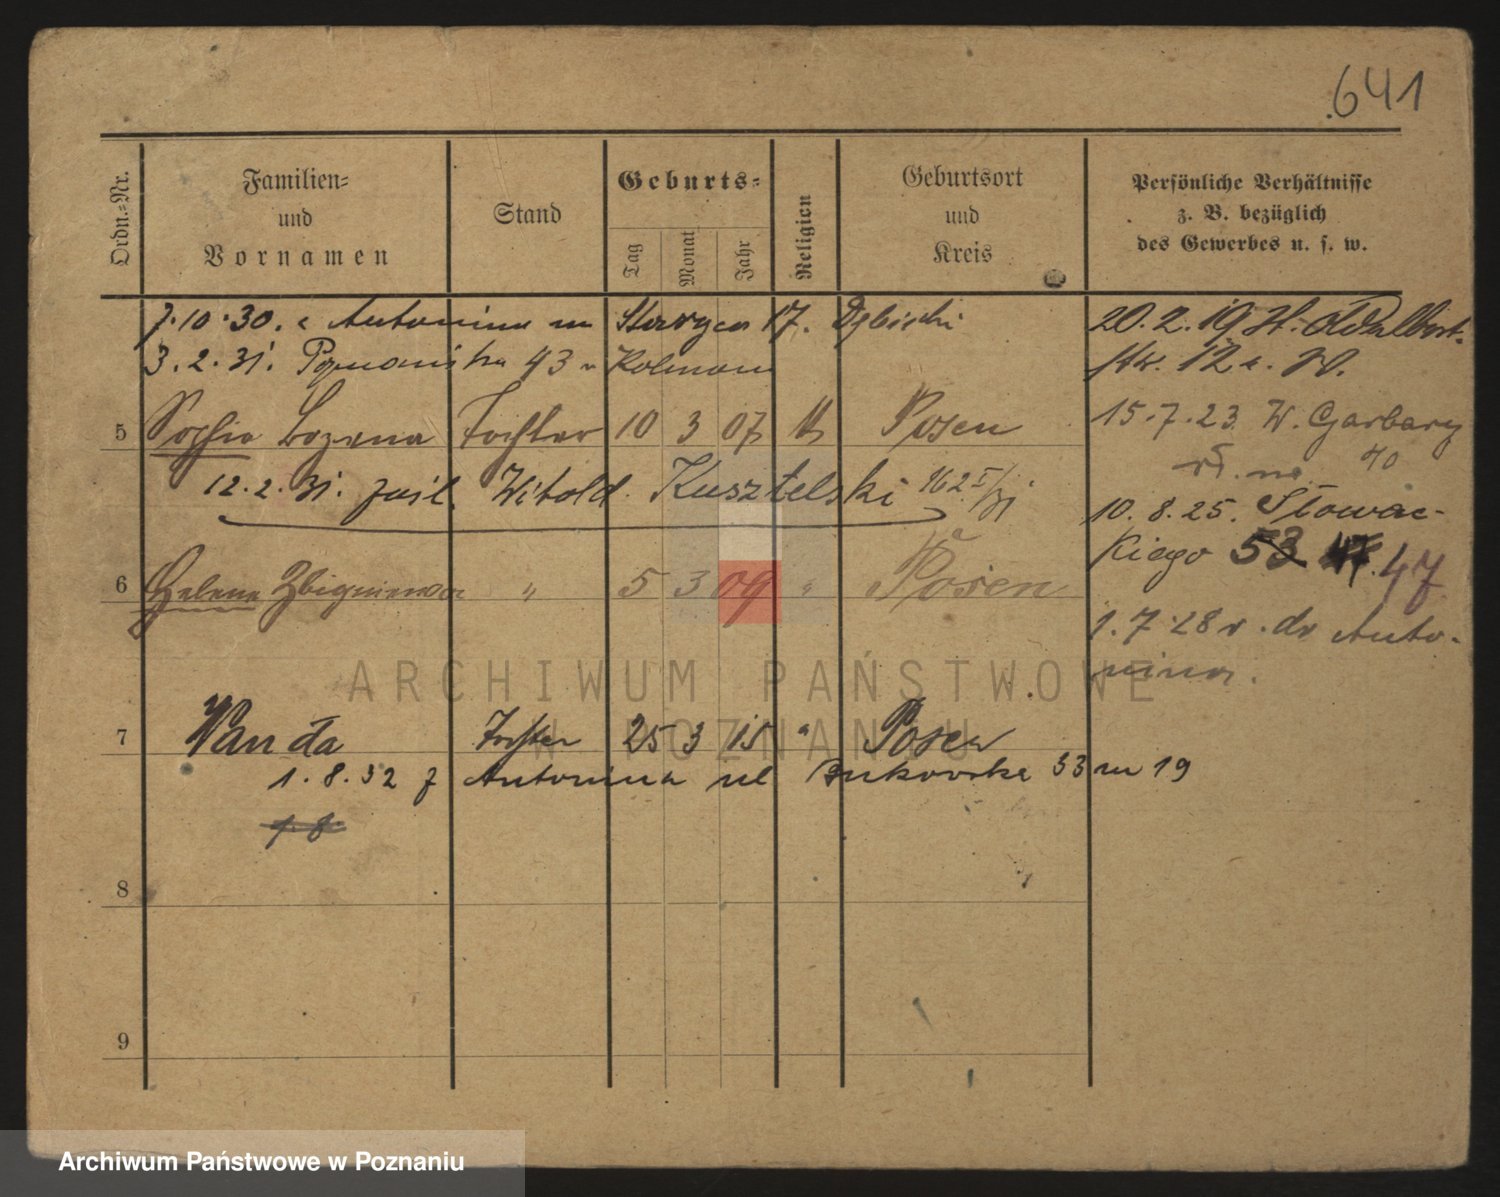 641
Ordn.-Nr.
Familien-
und
Vornamen
Stand
Geburts-
Tag
Monat
Jahr
Religion
Geburtsort
und
Kreis
Persönliche Verhältnisse
z. B. bezüglich
des Gewerbes u. s. w.
7.10.30. Antonina m 17.
3.2.31. 43
5 Sophie Bozena Tochter 10 3 07 Posen
12.2.31. Witold Kusztelski
6 Helene Zbigniewa " 5 3 09 " Posen
7 Wanda Tochter 25 3 15 " Posen
1.8.32 z Antonina ul Bukowska 33 m 19
1.8.
8
9
20.2.19 St. Adalbert-
str. 12
15.7.23 W. Garbary
40
10.8.25. Słowac-
kiego 53 47 47
1.7.28 Anto-
nina.
ARCHIWUM PAŃSTWOWE
W POZNANIU
Archiwum Państwowe w Poznaniu